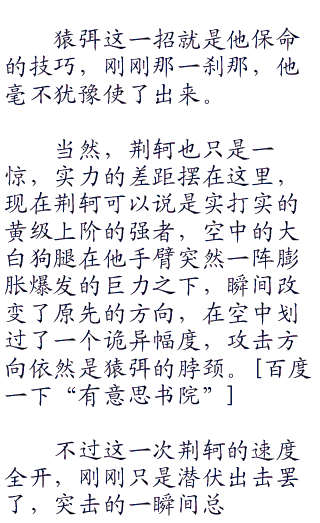 猿弭这一招就是他保命
的技巧，刚刚那一刹那，他
毫不犹豫使了出来。
当然，荆轲也只是一
惊，实力的差距摆在这里，
现在荆轲可以说是实打实的
黄级上阶的强者，空中的大
白狗腿在他手臂突然一阵膨
胀爆发的巨力之下，瞬间改
变了原先的方向，在空中划
过了一个诡异幅度，攻击方
向依然是猿弭的脖颈。[百度
一下“有意思书院”]
不过这一次荆轲的速度
全开，刚刚只是潜伏出击罢
了，突击的一瞬间总